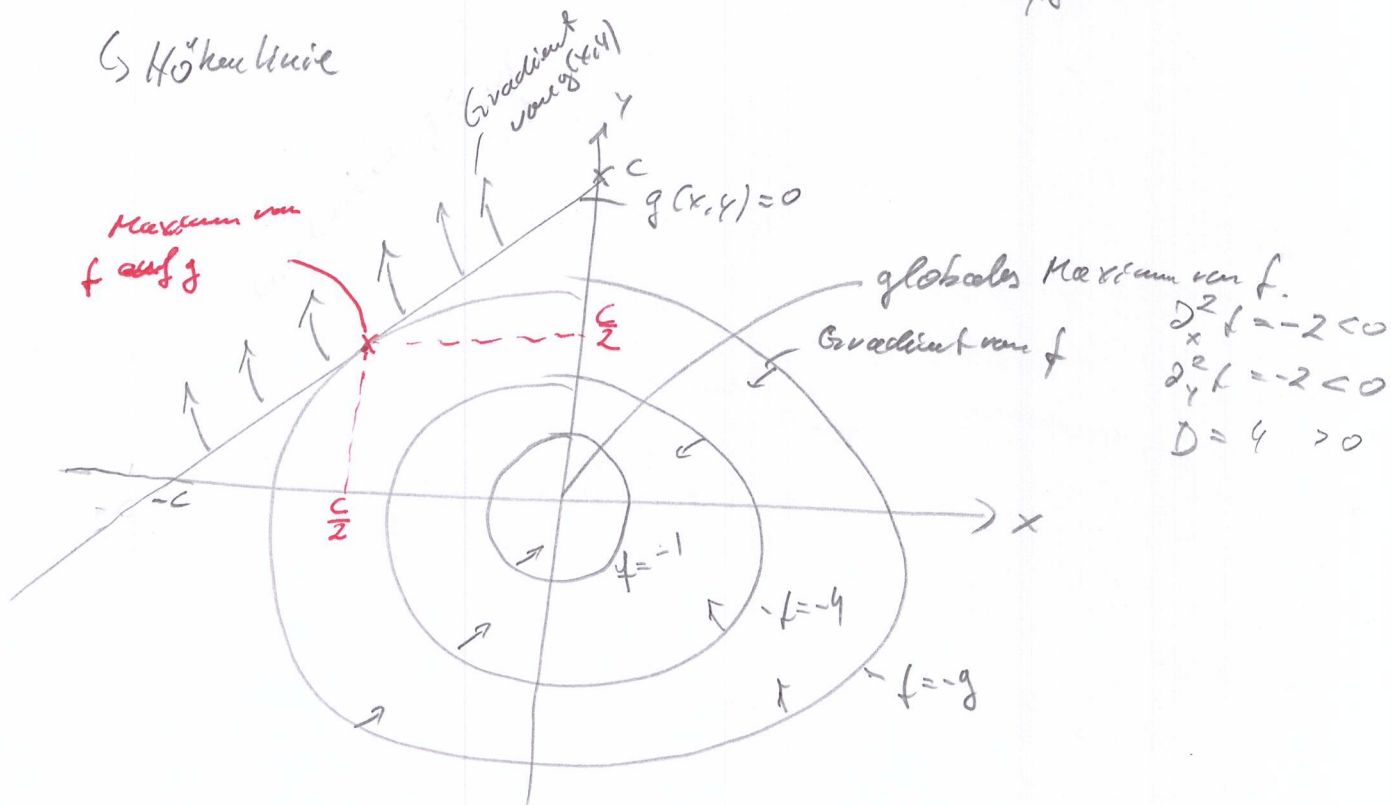 ↳ Höhenlinie
Gradient
von g(x,y)
y
c
g(x,y)=0
Maximum von
f auf g
globales Maximum von f.
∂²ₓ f = -2 < 0
c/2
Gradient von f
∂²ᵧ f = -2 < 0
D = 4 > 0
-c
c/2
x
f=-1
f=-4
f=-9